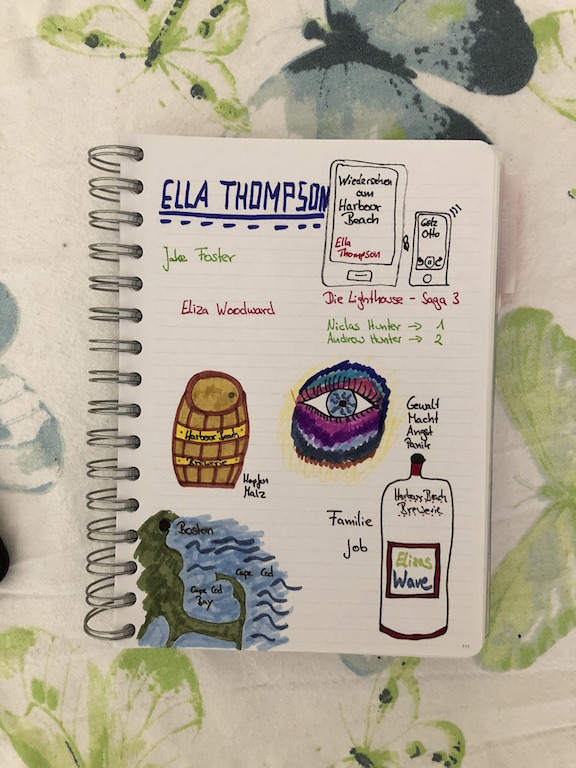 ELLA THOMPSON
Wiedersehen
am
Harbour
Beach
Ella
Thompson
Götz
Otto
Jake Foster
Eliza Woodward
Die Lighthouse - Saga 3
Niclas Hunter → 1
Andrew Hunter → 2
Harbour Beach
Brewerie
Hopfen
Malz
Gewalt
Macht
Angst
Panik
Familie
Job
Harbour Beach
Brewerie
Elizas
Wave
Boston
Cape Cod
Cape Cod
Bay